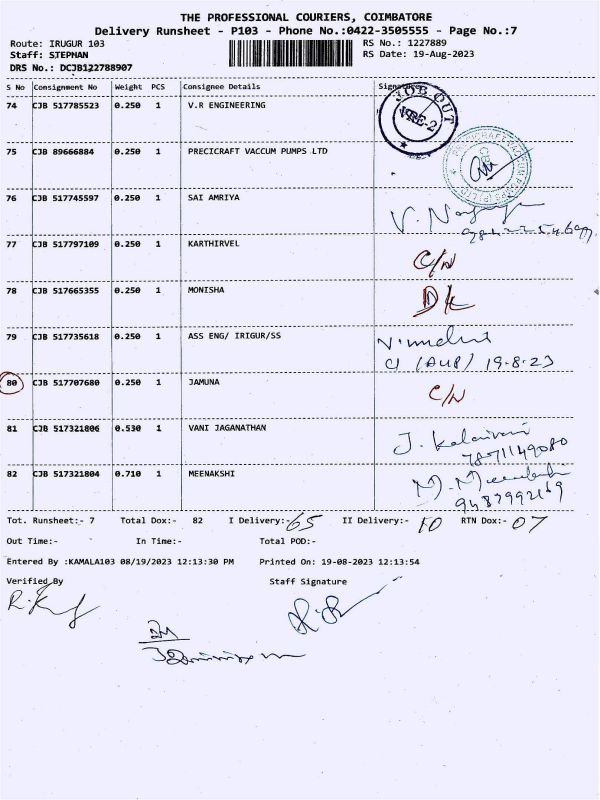 THE PROFESSIONAL COURIERS, COIMBATORE
Delivery Runsheet - P103 - Phone No.:0422-3505555 - Page No.:7
Route: IRUGUR 103 RS No.: 1227889
Staff: STEPHAN RS Date: 19-Aug-2023
DRS No.: DCJB122788907
S No Consignment No Weight PCS Consignee Details Signature
74 CJB 517785523 0.250 1 V.R ENGINEERING
JOB OUT
VRE-2
75 CJB 89666884 0.250 1 PRECICRAFT VACCUM PUMPS LTD
76 CJB 517745597 0.250 1 SAI AMRIYA
77 CJB 517797109 0.250 1 KARTHIRVEL C/N
78 CJB 517665355 0.250 1 MONISHA D/L
79 CJB 517735618 0.250 1 ASS ENG/ IRIGUR/SS
19-8-23
80 CJB 517707680 0.250 1 JAMUNA C/N
81 CJB 517321806 0.530 1 VANI JAGANATHAN J. Kalaivani
7871149080
82 CJB 517321804 0.710 1 MEENAKSHI M. Meenakshi
9487992169
Tot. Runsheet:- 7 Total Dox:- 82 I Delivery:- 65 II Delivery:- 10 RTN Dox:- 07
Out Time:- In Time:- Total POD:-
Entered By :KAMALA103 08/19/2023 12:13:30 PM Printed On: 19-08-2023 12:13:54
Verified By Staff Signature